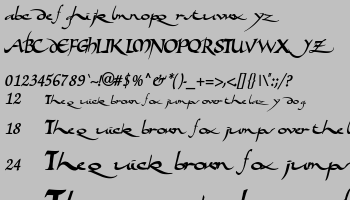 abc def ghijklmnopq rstuvwx yz
ABCDEFGHIJKLMNOPQRSTUVWX YZ
0123456789`~!@#$%^&*()-_+=>;<.[]{}|\:;/?
12 The quick brown fox jumps over the laz y dog
18 The quick brown fox jumps over the l
24 The quick brown fox jumps